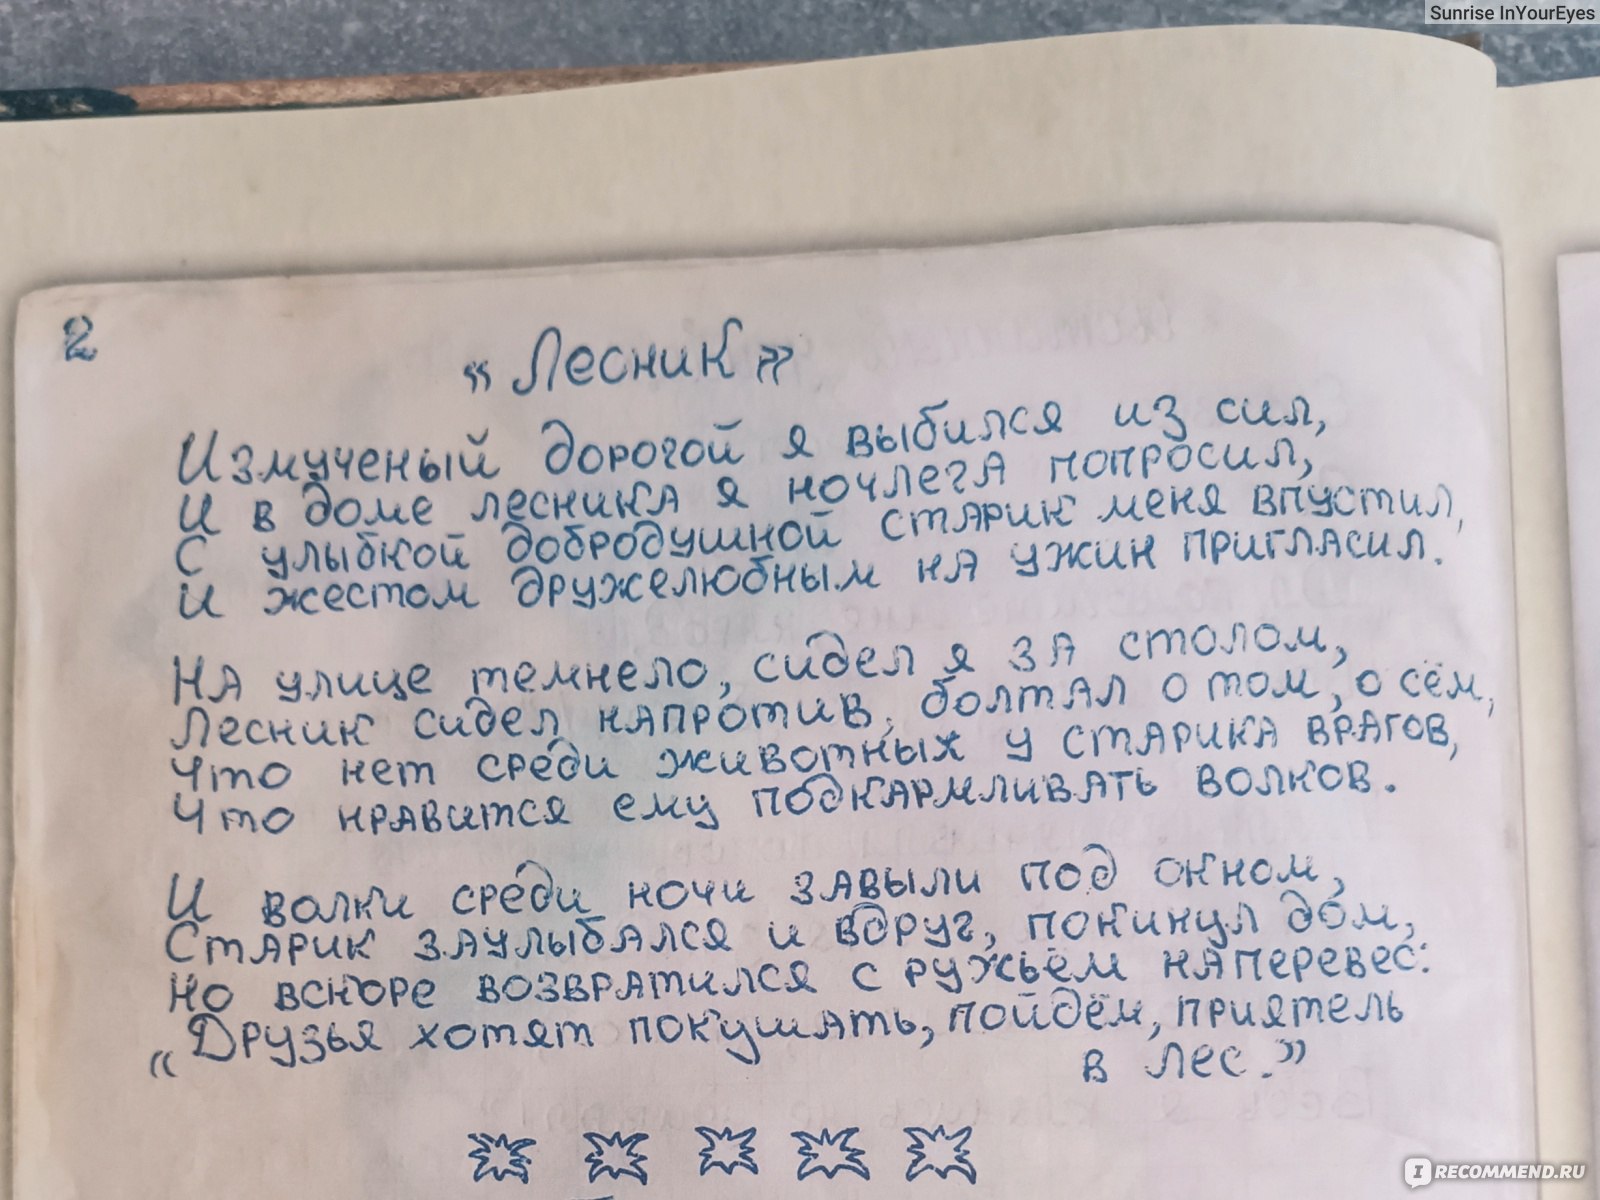 Sunrise InYourEyes
2
«Лесник»
Измученый дорогой я выбился из сил,
И в доме лесника я ночлега попросил,
С улыбкой добродушной старик меня впустил,
И жестом дружелюбным на ужин пригласил.
На улице темнело, сидел я за столом,
Лесник сидел напротив, болтал о том, о сём,
Что нет среди животных у старика врагов,
Что нравится ему подкармливать волков.
И волки среди ночи завыли под окном,
Старик заулыбался и вдруг, покинул дом,
Но вскоре возвратился с ружьём наперевес:
«Друзья хотят покушать, пойдём, приятель
в лес.»
IRECOMMEND.RU